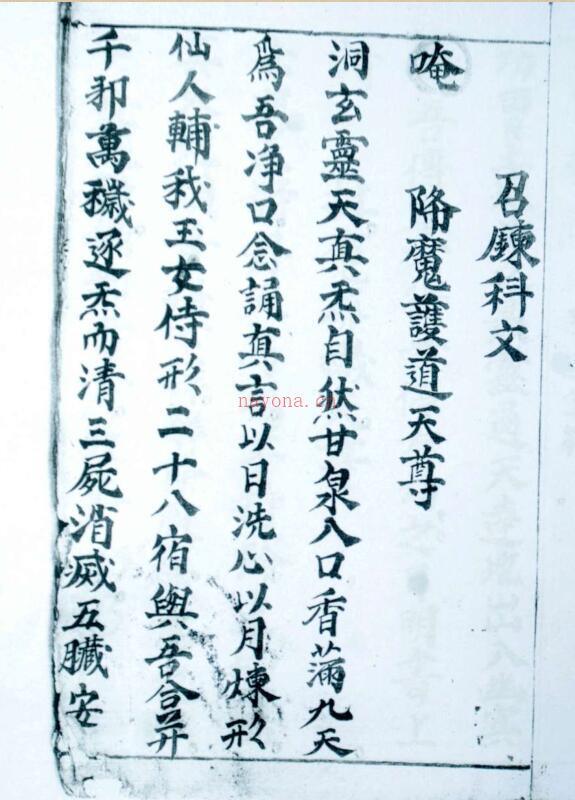 召鍊科文
唵 降魔護道天尊
洞玄靈天真炁自然甘泉入口香滿九天
爲吾净口念誦真言以日洗心以月煉形
仙人輔我玉女侍形二十八宿與吾合并
千邪萬穢逐炁而清三屍消滅五臟安
nayona.cn